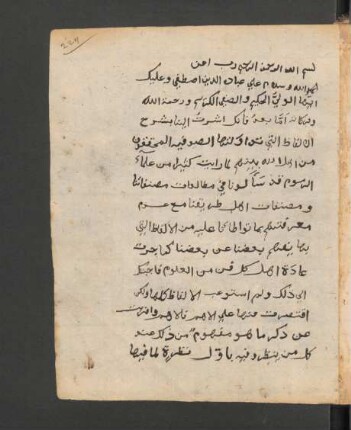 224
بسم الله الرحمن الرحيم رب اعن
الحمد لله وسلام علي عباده الذين اصطفي وعليك
ايها الولي الحكيم والصفي الكريم ورحمة الله
وبركاته اما بعد فانك اشرت الينا بشرح
الالفاظ التي تداولتها الصوفية المحققون
من اهل الله بينهم لما رايت كثيرا من علماء
الرسوم قد سالونا في مطالعات مصنفاتنا
ومصنفات اهل طريقنا مع عدم
معرفتهم بما تواطانا عليه من الالفاظ التي
بها يفهم بعضنا عن بعض كما جرت
عادة اهل كل فن من العلوم فاجبتك
الي ذلك ولم استوعب الالفاظ كلها ولكن
اقتصرت منها علي الاهم فالاهم واضربت
عن ذكر ما هو مفهوم من ذلك عند
كل من ينظر فيه باول نظرة لما فيها